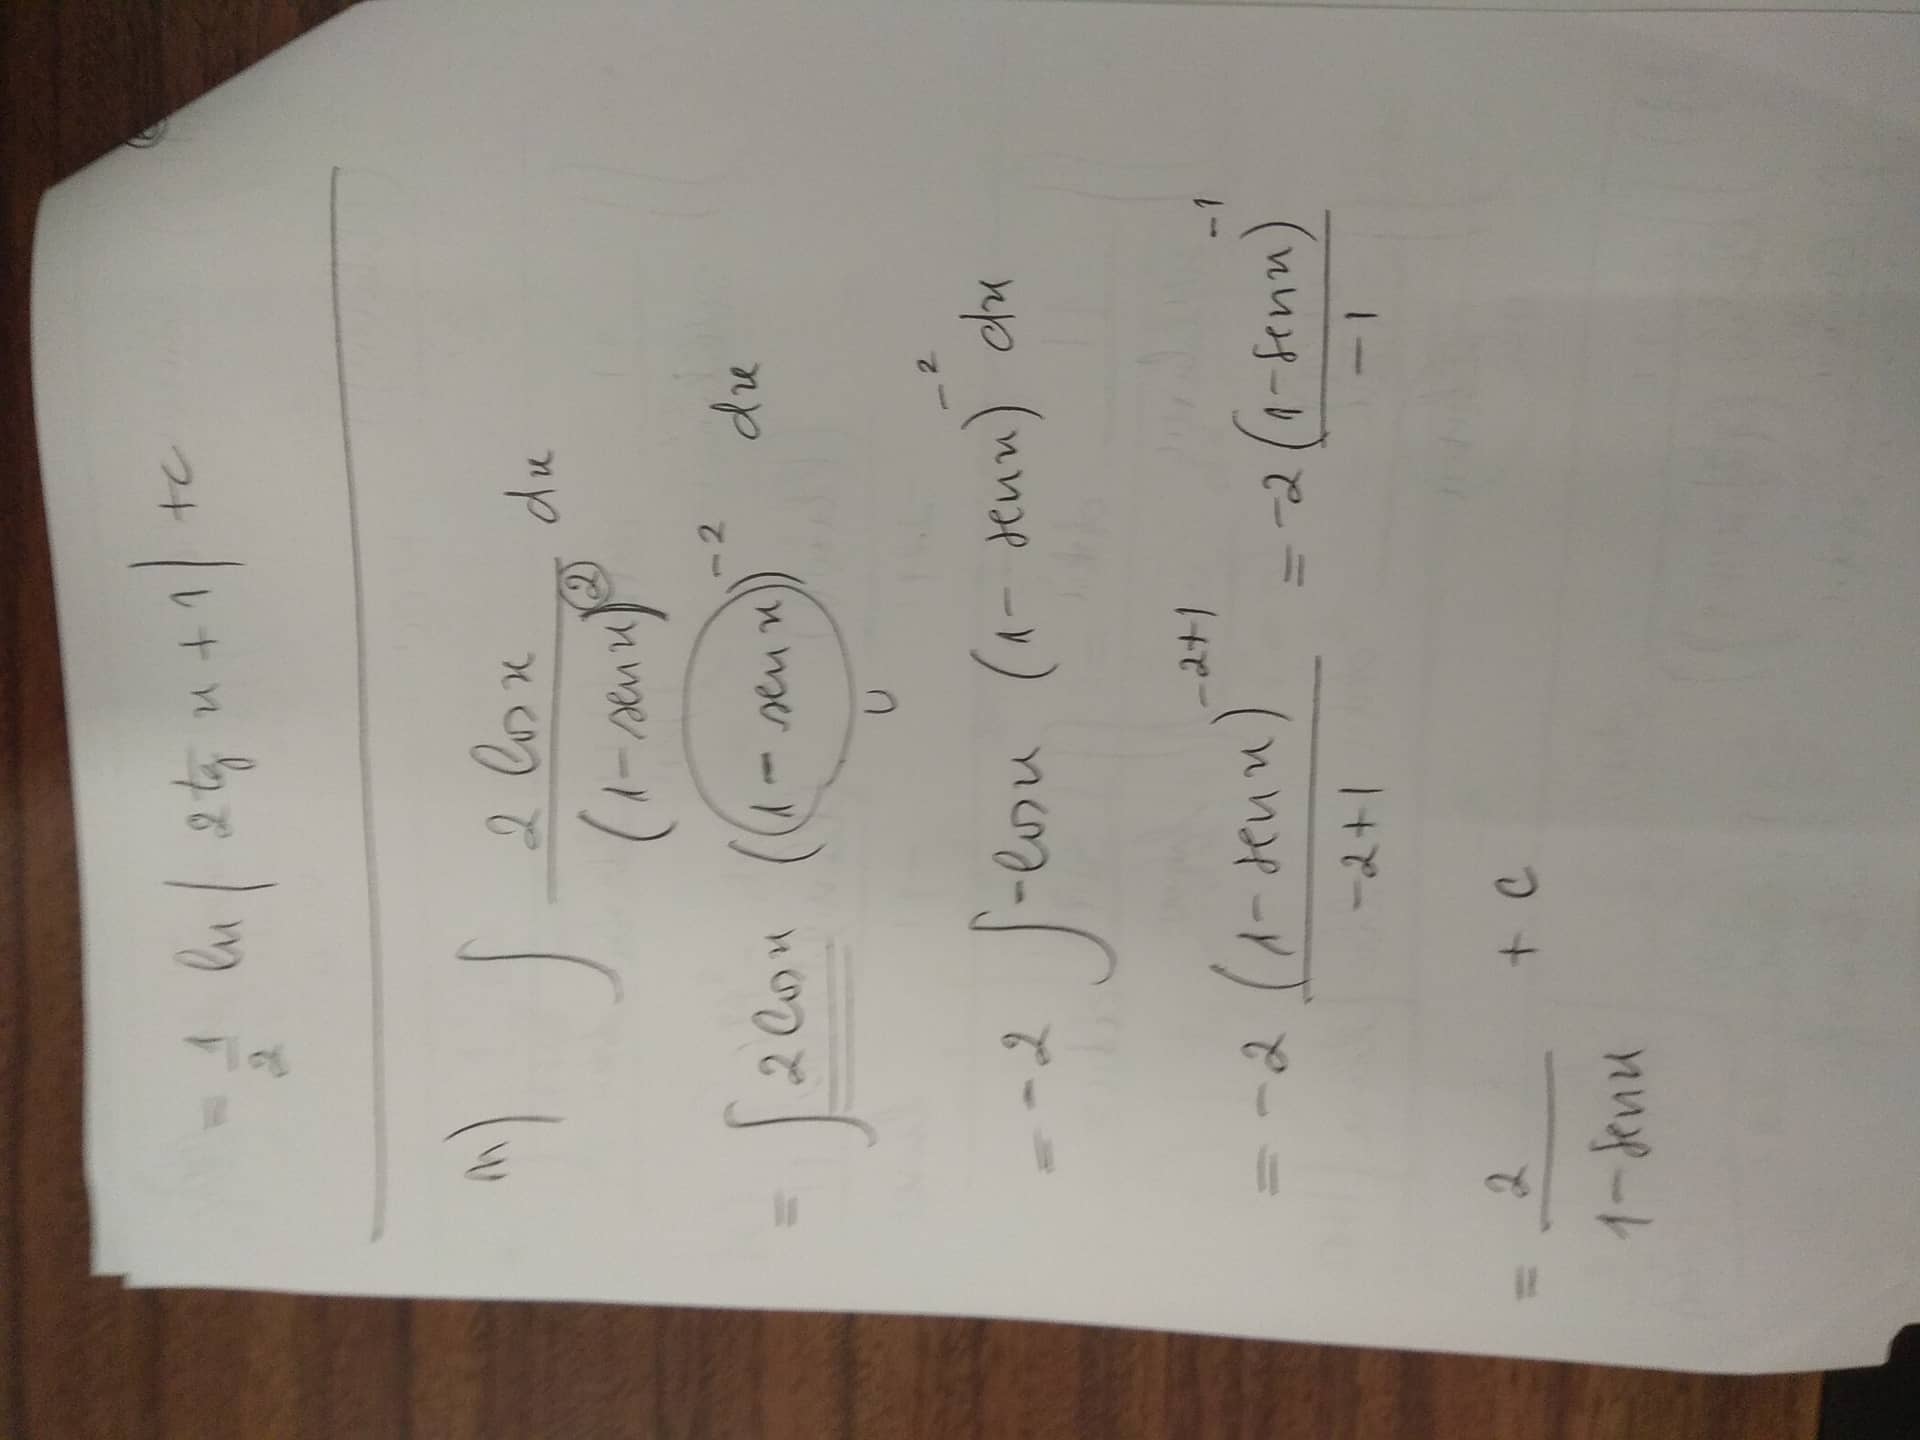 = 1/2 ln | 2tg x + 1 | + c
m) ∫ 2 cos x / (1 - sen x)^2 dx
= ∫ 2 cos x ((1 - sen x))^-2 dx
U
= -2 ∫ -cos x (1 - sen x)^-2 dx
= -2 (1 - sen x)^-2+1 / -2+1 = -2 (1 - sen x)^-1 / -1
= 2 / 1 - sen x + c